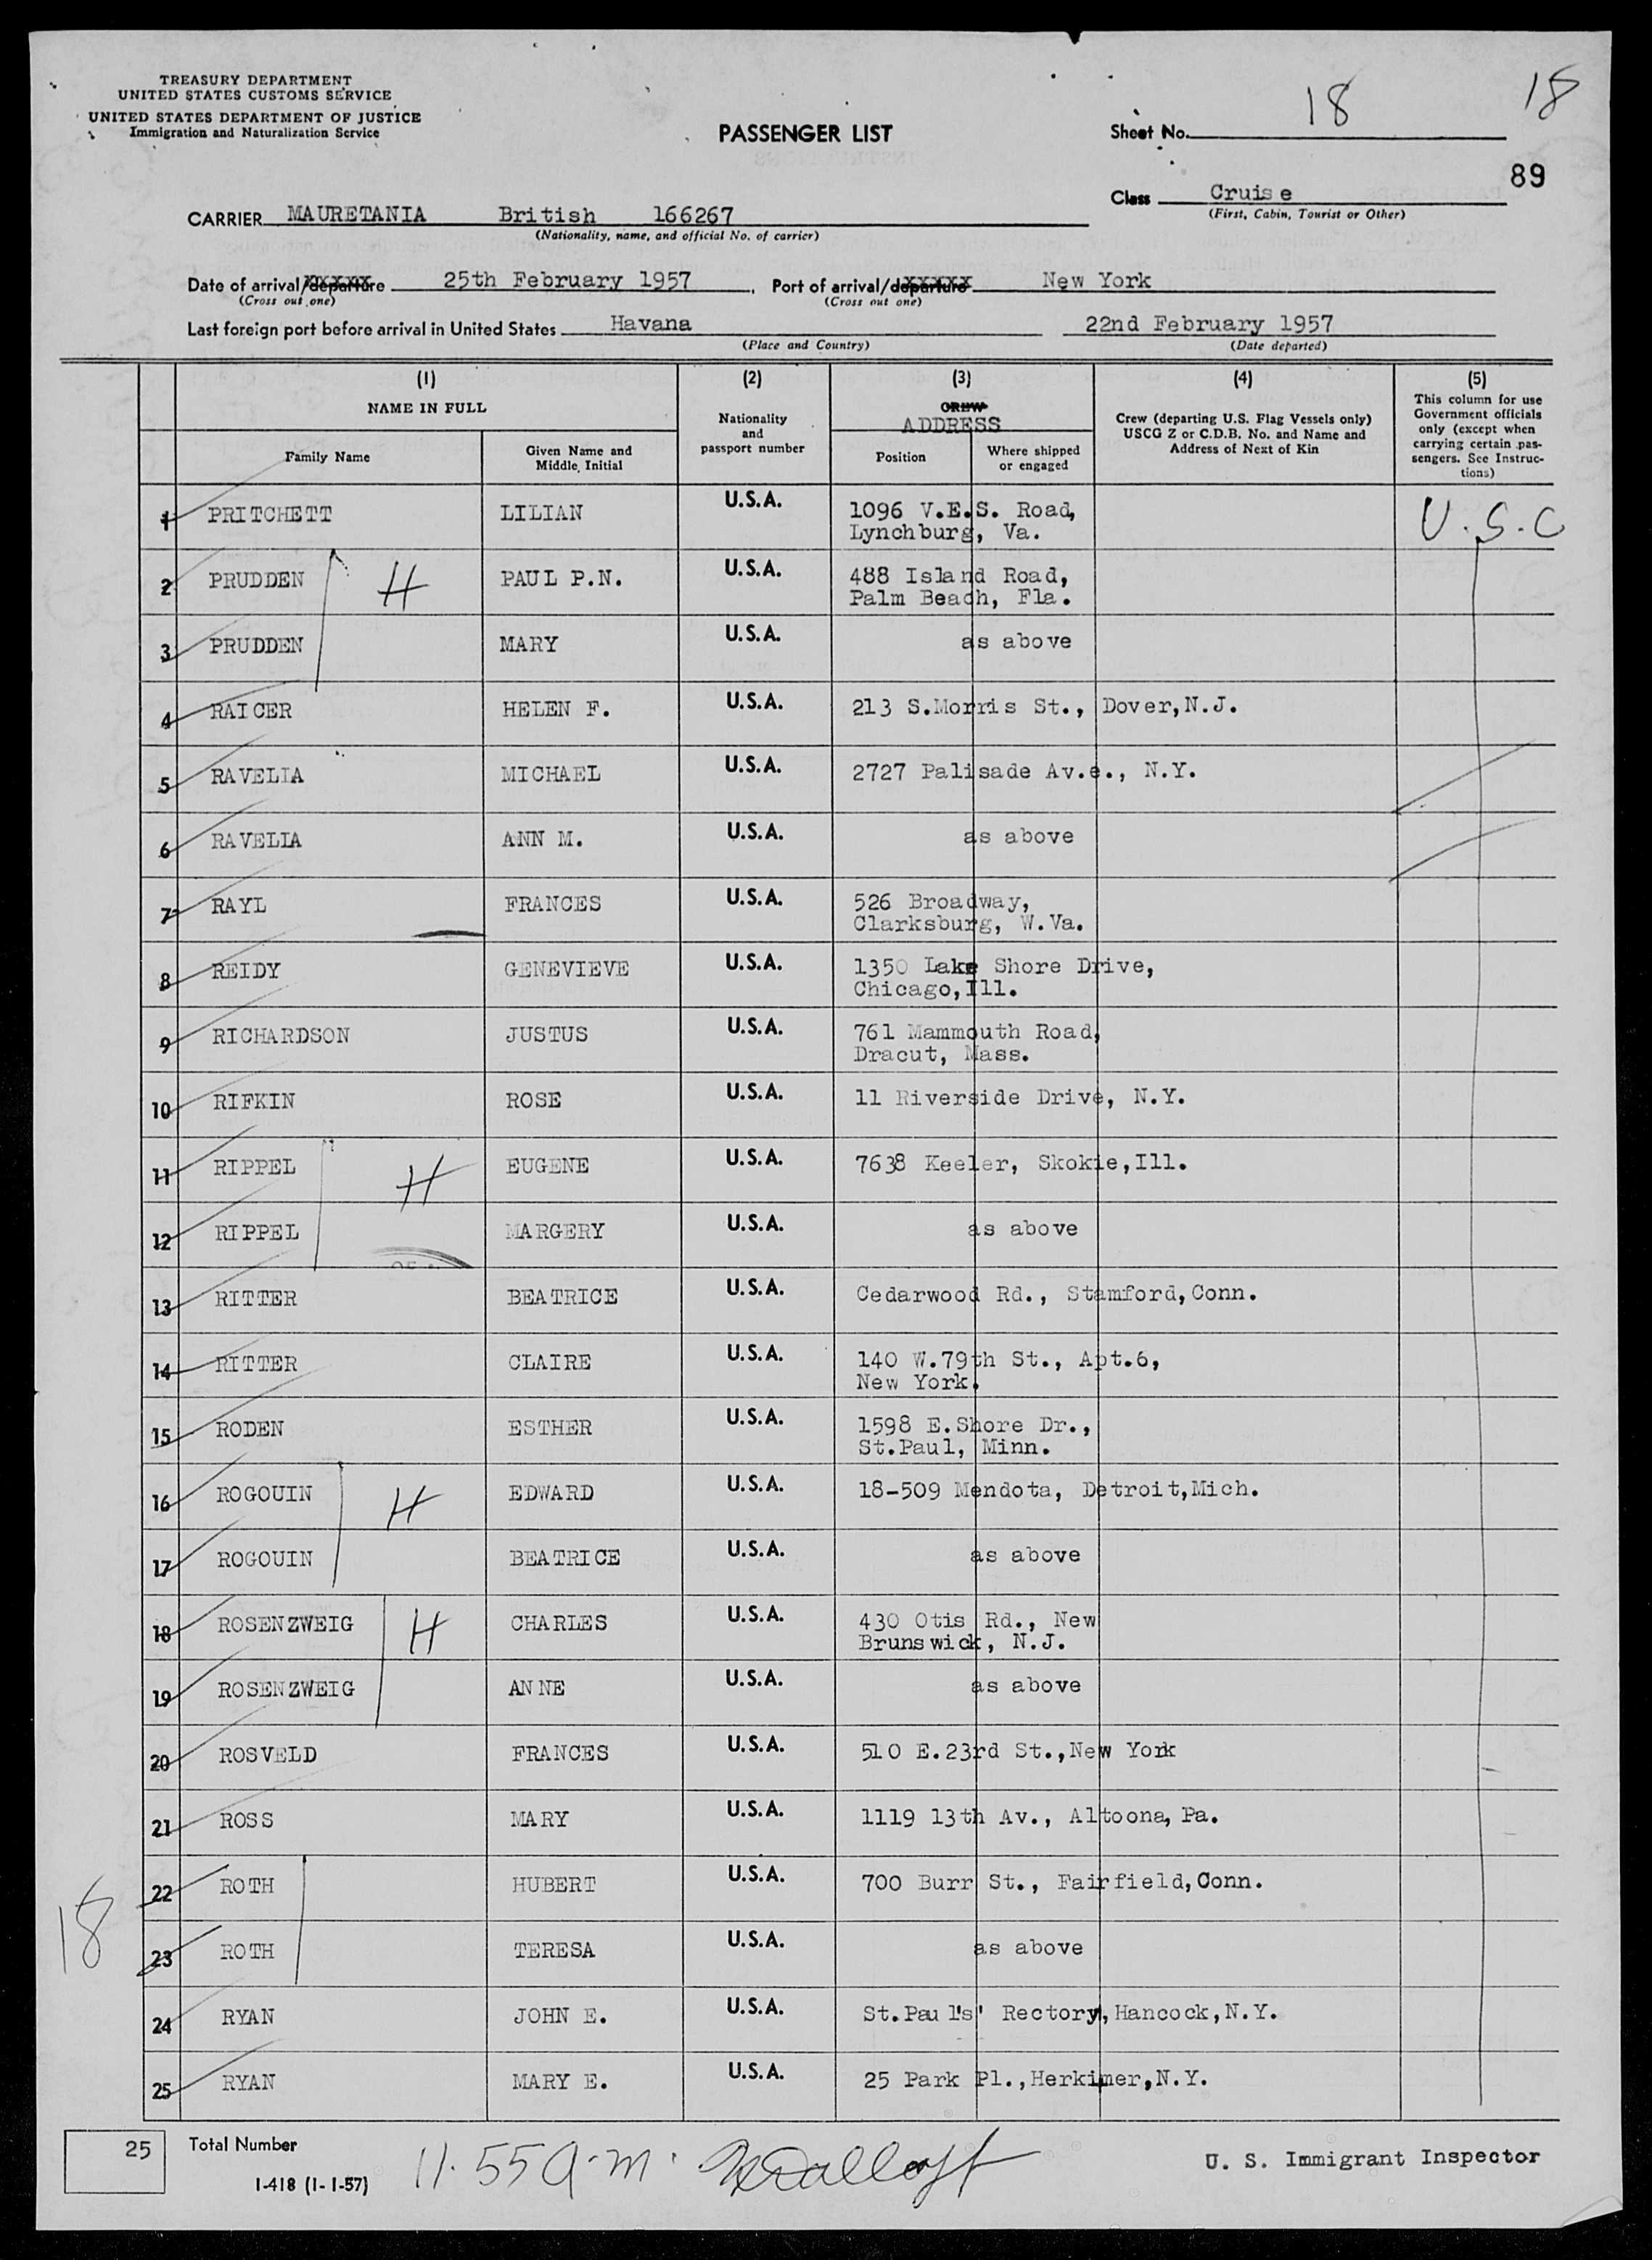 TREASURY DEPARTMENT
UNITED STATES CUSTOMS SERVICE
UNITED STATES DEPARTMENT OF JUSTICE
Immigration and Naturalization Service
PASSENGER LIST
Sheet No. 18
18
89
Class Cruise
(First, Cabin, Tourist or Other)
CARRIER MAURETANIA British 166267
(Nationality, name, and official No. of carrier)
Date of arrival/departure 25th February 1957, Port of arrival/departure New York
(Cross out one) (Cross out one)
Last foreign port before arrival in United States Havana 22nd February 1957
(Place and Country) (Date departed)
(1) (2) (3) (4) (5)
NAME IN FULL
Family Name
Given Name and Middle Initial
Nationality and passport number
CREW
ADDRESS
Position
Where shipped or engaged
Crew (departing U.S. Flag Vessels only) USCG Z or C.D.B. No. and Name and Address of Next of Kin
This column for use Government officials only (except when carrying certain passengers. See Instructions)
1 PRITCHETT LILIAN U.S.A. 1096 V.E.S. Road, U.S.C
Lynchburg, Va.
2 PRUDDEN H PAUL P.N. U.S.A. 488 Island Road,
Palm Beach, Fla.
3 PRUDDEN MARY U.S.A. as above
4 RAICER HELEN F. U.S.A. 213 S.Morris St., Dover,N.J.
5 RAVELIA MICHAEL U.S.A. 2727 Palisade Av.e., N.Y.
6 RAVELIA ANN M. U.S.A. as above
7 RAYL FRANCES U.S.A. 526 Broadway,
Clarksburg, W.Va.
8 REIDY GENEVIEVE U.S.A. 1350 Lake Shore Drive,
Chicago,Ill.
9 RICHARDSON JUSTUS U.S.A. 761 Mammouth Road,
Dracut, Mass.
10 RIFKIN ROSE U.S.A. 11 Riverside Drive, N.Y.
11 RIPPEL H EUGENE U.S.A. 7638 Keeler, Skokie,Ill.
12 RIPPEL MARGERY U.S.A. as above
13 RITTER BEATRICE U.S.A. Cedarwood Rd., Stamford,Conn.
14 RITTER CLAIRE U.S.A. 140 W.79th St., Apt.6,
New York.
15 RODEN ESTHER U.S.A. 1598 E.Shore Dr.,
St.Paul, Minn.
16 ROGOUIN H EDWARD U.S.A. 18-509 Mendota, Detroit,Mich.
17 ROGOUIN BEATRICE U.S.A. as above
18 ROSENZWEIG H CHARLES U.S.A. 430 Otis Rd., New
Brunswick, N.J.
19 ROSENZWEIG ANNE U.S.A. as above
20 ROSVELD FRANCES U.S.A. 510 E.23rd St.,New York
21 ROSS MARY U.S.A. 1119 13th Av., Altoona, Pa.
22 ROTH HUBERT U.S.A. 700 Burr St., Fairfield,Conn.
18
23 ROTH TERESA U.S.A. as above
24 RYAN JOHN E. U.S.A. St.Paul's' Rectory,Hancock,N.Y.
25 RYAN MARY E. U.S.A. 25 Park Pl.,Herkimer,N.Y.
25 Total Number 11.55 a.m. U. S. Immigrant Inspector
I-418 (1-1-57)